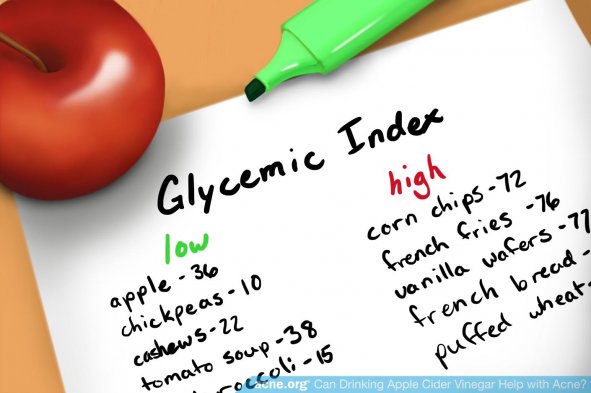 Glycemic Index
low
apple - 36
chickpeas - 10
cashews - 22
tomato soup - 38
broccoli - 15
high
corn chips - 72
french fries - 76
vanilla wafers - 77
french bread -
puffed wheat -
acne.org Can Drinking Apple Cider Vinegar Help with Acne?